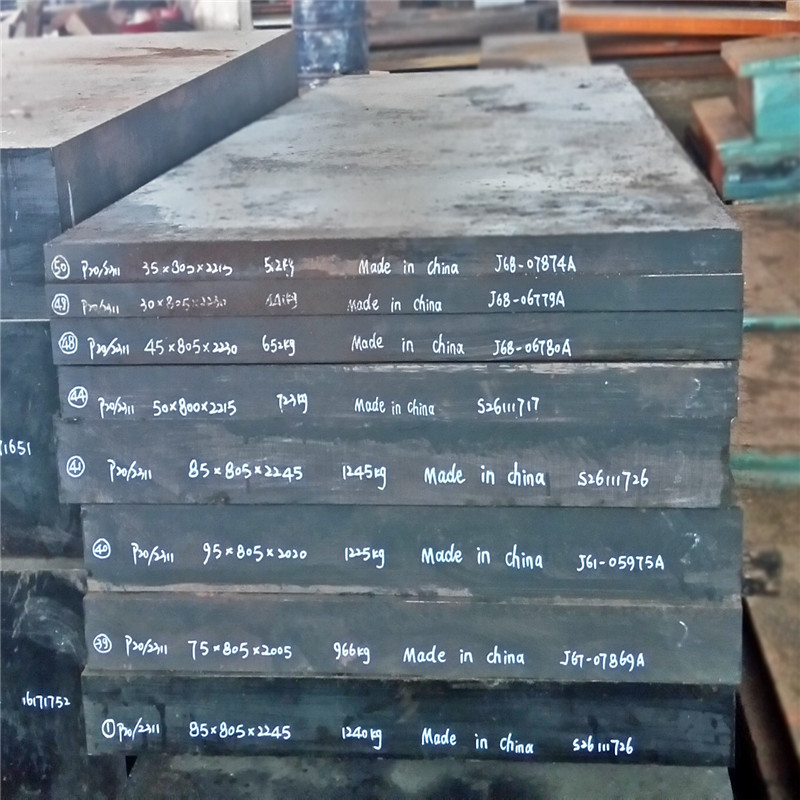 50 P20/2311 35×300×2215 512kg Made in china J68-07874A
49 P20/2311 30×805×2230 441kg Made in china J68-06779A
48 P20/2311 45×805×2230 652kg Made in china J68-06780A
44 P20/2311 50×800×2215 723kg Made in china S26111717
41 P20/2311 85×805×2245 1245kg Made in china S26111726
1651
40 P20/2311 95×805×2020 1225kg Made in china J61-05975A
39 P20/2311 75×805×2005 966kg Made in china J67-07869A
16171752
1 P20/2311 85×805×2245 1240kg Made in china S26111726